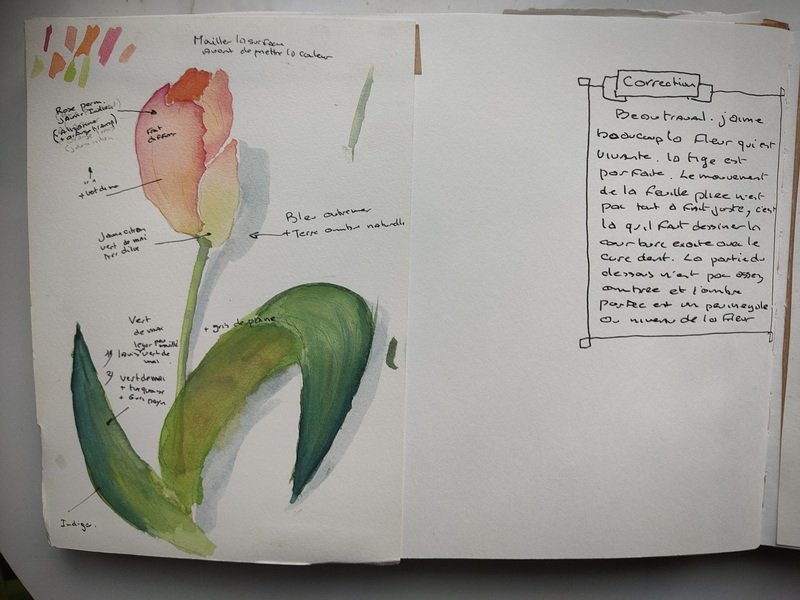 Mouiller la surface
avant de mettre la couleur
Rose perm.
jaune Indien
+ vert de mai
Jaune citron
vert de mai
très dilué
Bleu outremer
+ Terre ombre naturelle
+ gris de payne
Vert
de mai
leger
1) lavis vert de
mai
2) vert de mai
+ turquoise
+ Gris payn
Indigo.
Correction
Beau travail. j'aime
beaucoup la fleur qui est
vivante. la tige est
parfaite. Le mouvement
de la feuille pliée n'est
pas tout à fait juste, c'est
là qu'il faut dessiner la
courbure exacte avec le
cure dent. La partie du
dessous n'est pas assez
ombrée et l'ombre
portée est un peu inégale
au niveau de la fleur